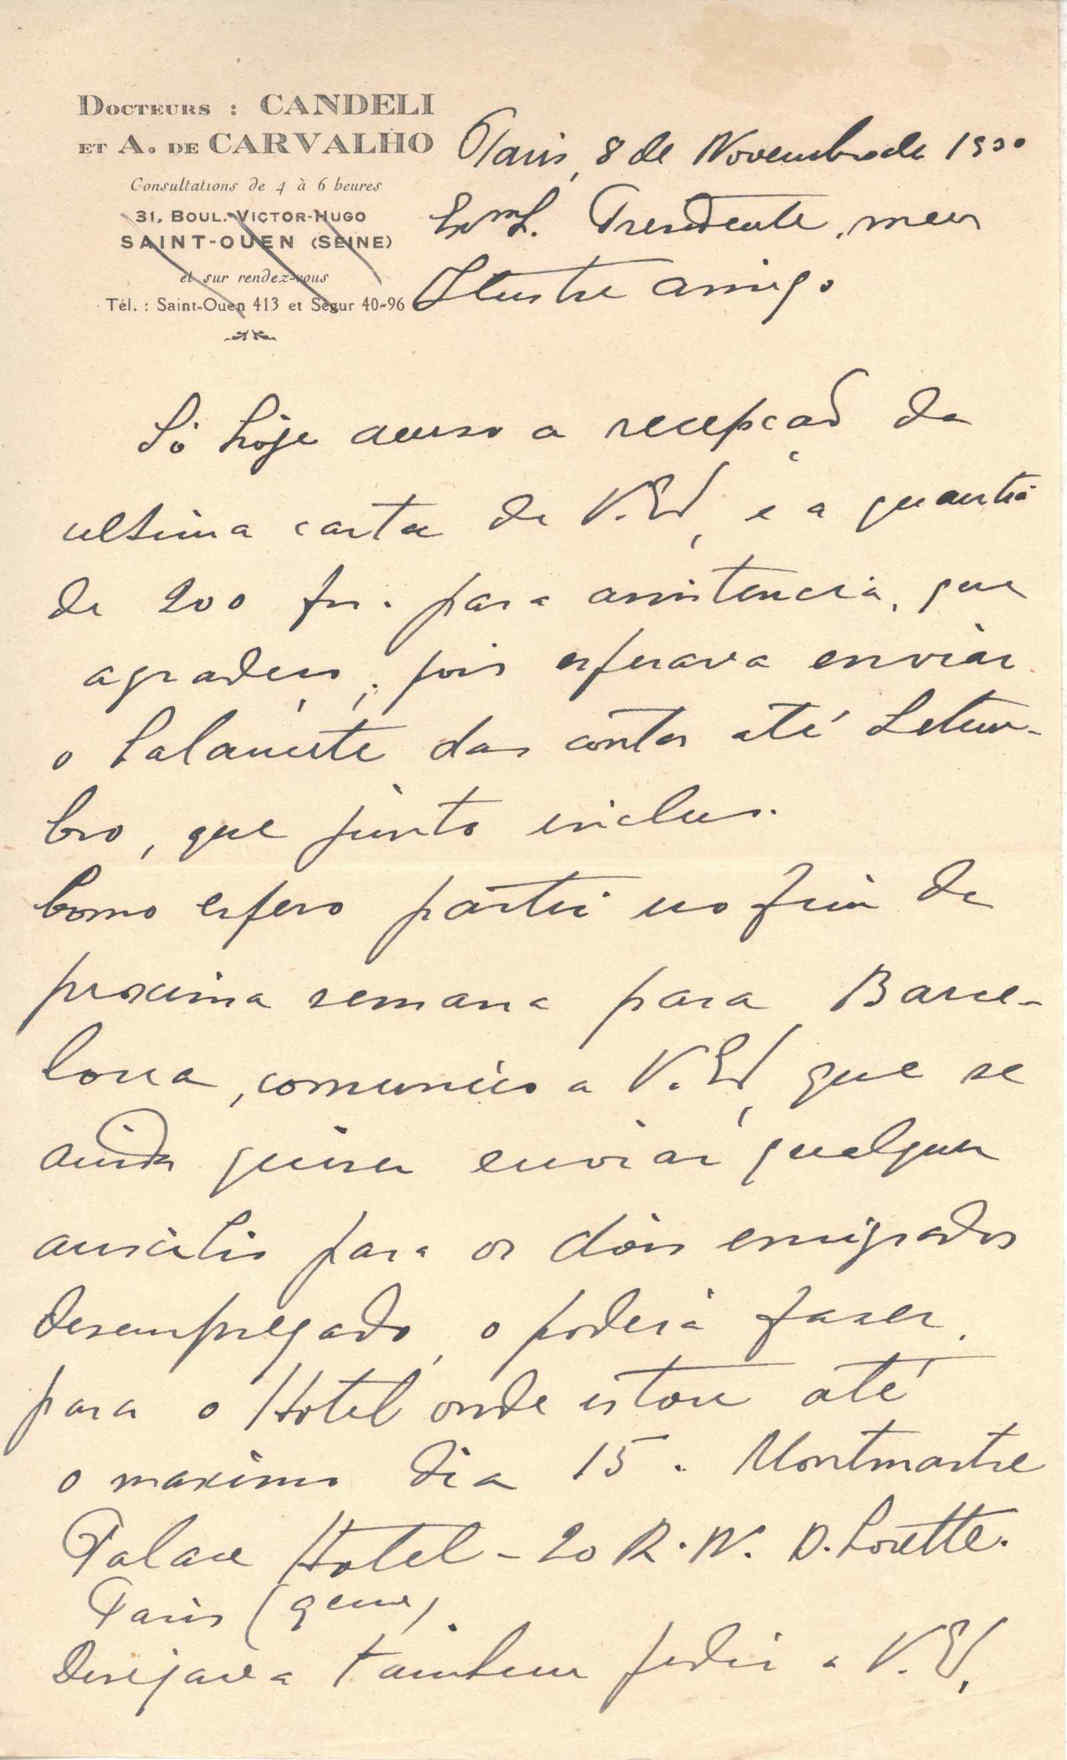 DOCTEURS : CANDELI
ET A. DE CARVALHO
Consultations de 4 à 6 heures
31, BOUL. VICTOR-HUGO
SAINT-OUEN (SEINE)
et sur rendez-vous
Tél. : Saint-Ouen 413 et Ségur 40-96
Paris, 8 de Novembro de 1930
Exmº S. Presidente, meu
Illustre amigo
Só hoje acuso a recepção da
ultima carta de V. Exª, e a quantia
de 200 frs. para assistencia, que
agradeço, pois esperava enviar
o balancete das contas até Setem-
bro, que junto incluso.
Como espero partir no fim da
proxima semana para Barce-
lona, comunico a V. Exª, que se
ainda quiser enviar qualquer
auxilio para os dois emigrados
desempregados, o poderá fazer
para o Hotel onde estou até
o maximo dia 15. Montmartre
Palace Hotel - 20 R. N. D. Lorette.
Paris (9eme).
Desejava tambem pedir a V. Exª,